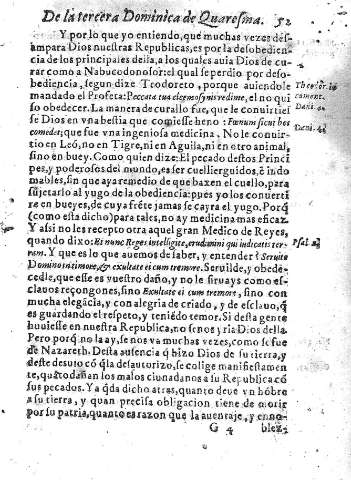 De la tercera Dominica de Quaresma. 52
Y por lo que yo entiendo, que muchas vezes dẽs-
ampara Dios nuestras Republicas, es por la desobedien-
cia de los principales della, a los quales auia Dios de cu-
rar como a Nabucodonosor: el qual se perdio por deso-
bediencia, segun dize Teodoreto, porque auiendole
mandado el Profeta: Peccata tua elegmosynis redime, el no qui
so obedecer. La manera de curallo fue, que le conuirties
se Dios en vna bestia que comiesse heno: Fœnum sicut bos
comedet; que fue vna ingeniosa medicina. No le conuir-
tio en Leõ, no en Tigre, ni en Aguila, ni en otro animal,
sino en buey. Como quien dize: El pecado destos Princi
pes, y poderosos del mundo, es ser cuellierguidos, ẽ indo
mables, sin que aya remedio de que baxen el cuello, para
sujetarlo al yugo de la obediencia: pues yo los conuerti
re en bueyes, de cuya frẽte jamàs se cayra el yugo. Porq̃
(como esta dicho) para tales, no ay medicina mas eficaz.
Y assi no les recepto otra aquel gran Medico de Reyes,
quando dixo: Et nunc Reges intelligite, erudimini qui indicatis ter-
ram. Y que es lo que auemos de saber, y entender? Seruite
Domino in timore, & exultate ei cum tremore. Seruilde, y obede-
cedle, que esse es vuestro daño, y no le siruays como es-
clauos reçongones, sino Exultate ei cum tremore, sino con
mucha elegãcia, y con alegria de criado, y de esclauo, q̃
es guardando el respeto, y teniẽdo temor. Si desta gente
huuiesse en nuestra Republica, no se nos yria Dios della.
Pero porq̃ no la ay, se nos va muchas vezes, como se fue
de Nazareth. Desta ausencia q̃ hizo Dios de su tierra, y
deste desuto cõ q̃ la desautorizo, se colige manifiestamen
te, quã dañan los malos ciudadanos a su Republica cõ
sus pecados. Ya q̃da dicho atras, quanto deue vn hõbre
a su tierra, y quan precisa obligacion tiene de morir
por su patria, quanto es razon que la auentaje, y enno-
G 4 blez-
Theodor. in
Dani. 4.
Dani. 4.
Psal. 2.